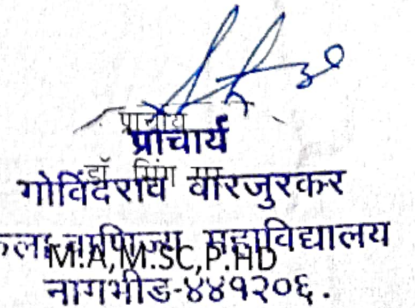 प्राचार्य
प्राचार्य
डॉ सिंग
गोविंदराव वारजुरकर
कला वाणिज्य महाविद्यालय
M.A,M.SC,P.HD
नागभीड-४४१२०६.